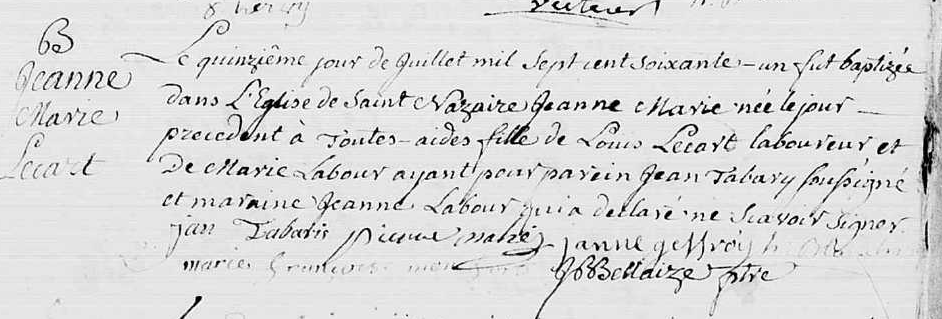 B
Jeanne
Marie
Lecart
Le quinziéme jour de Juillet mil sept cent soixante-un fut baptizée
dans L'Eglise de Saint Nazaire Jeanne Marie née le jour
precedent à Toutes-aides fille de Louis Lecart laboureur et
de Marie Labour ayant pour parein Jean Tabary soussigné
et maraine Jeanne Labour qui a declaré ne scavoir signer
jan Tabaris janne geffroy
marie françoise